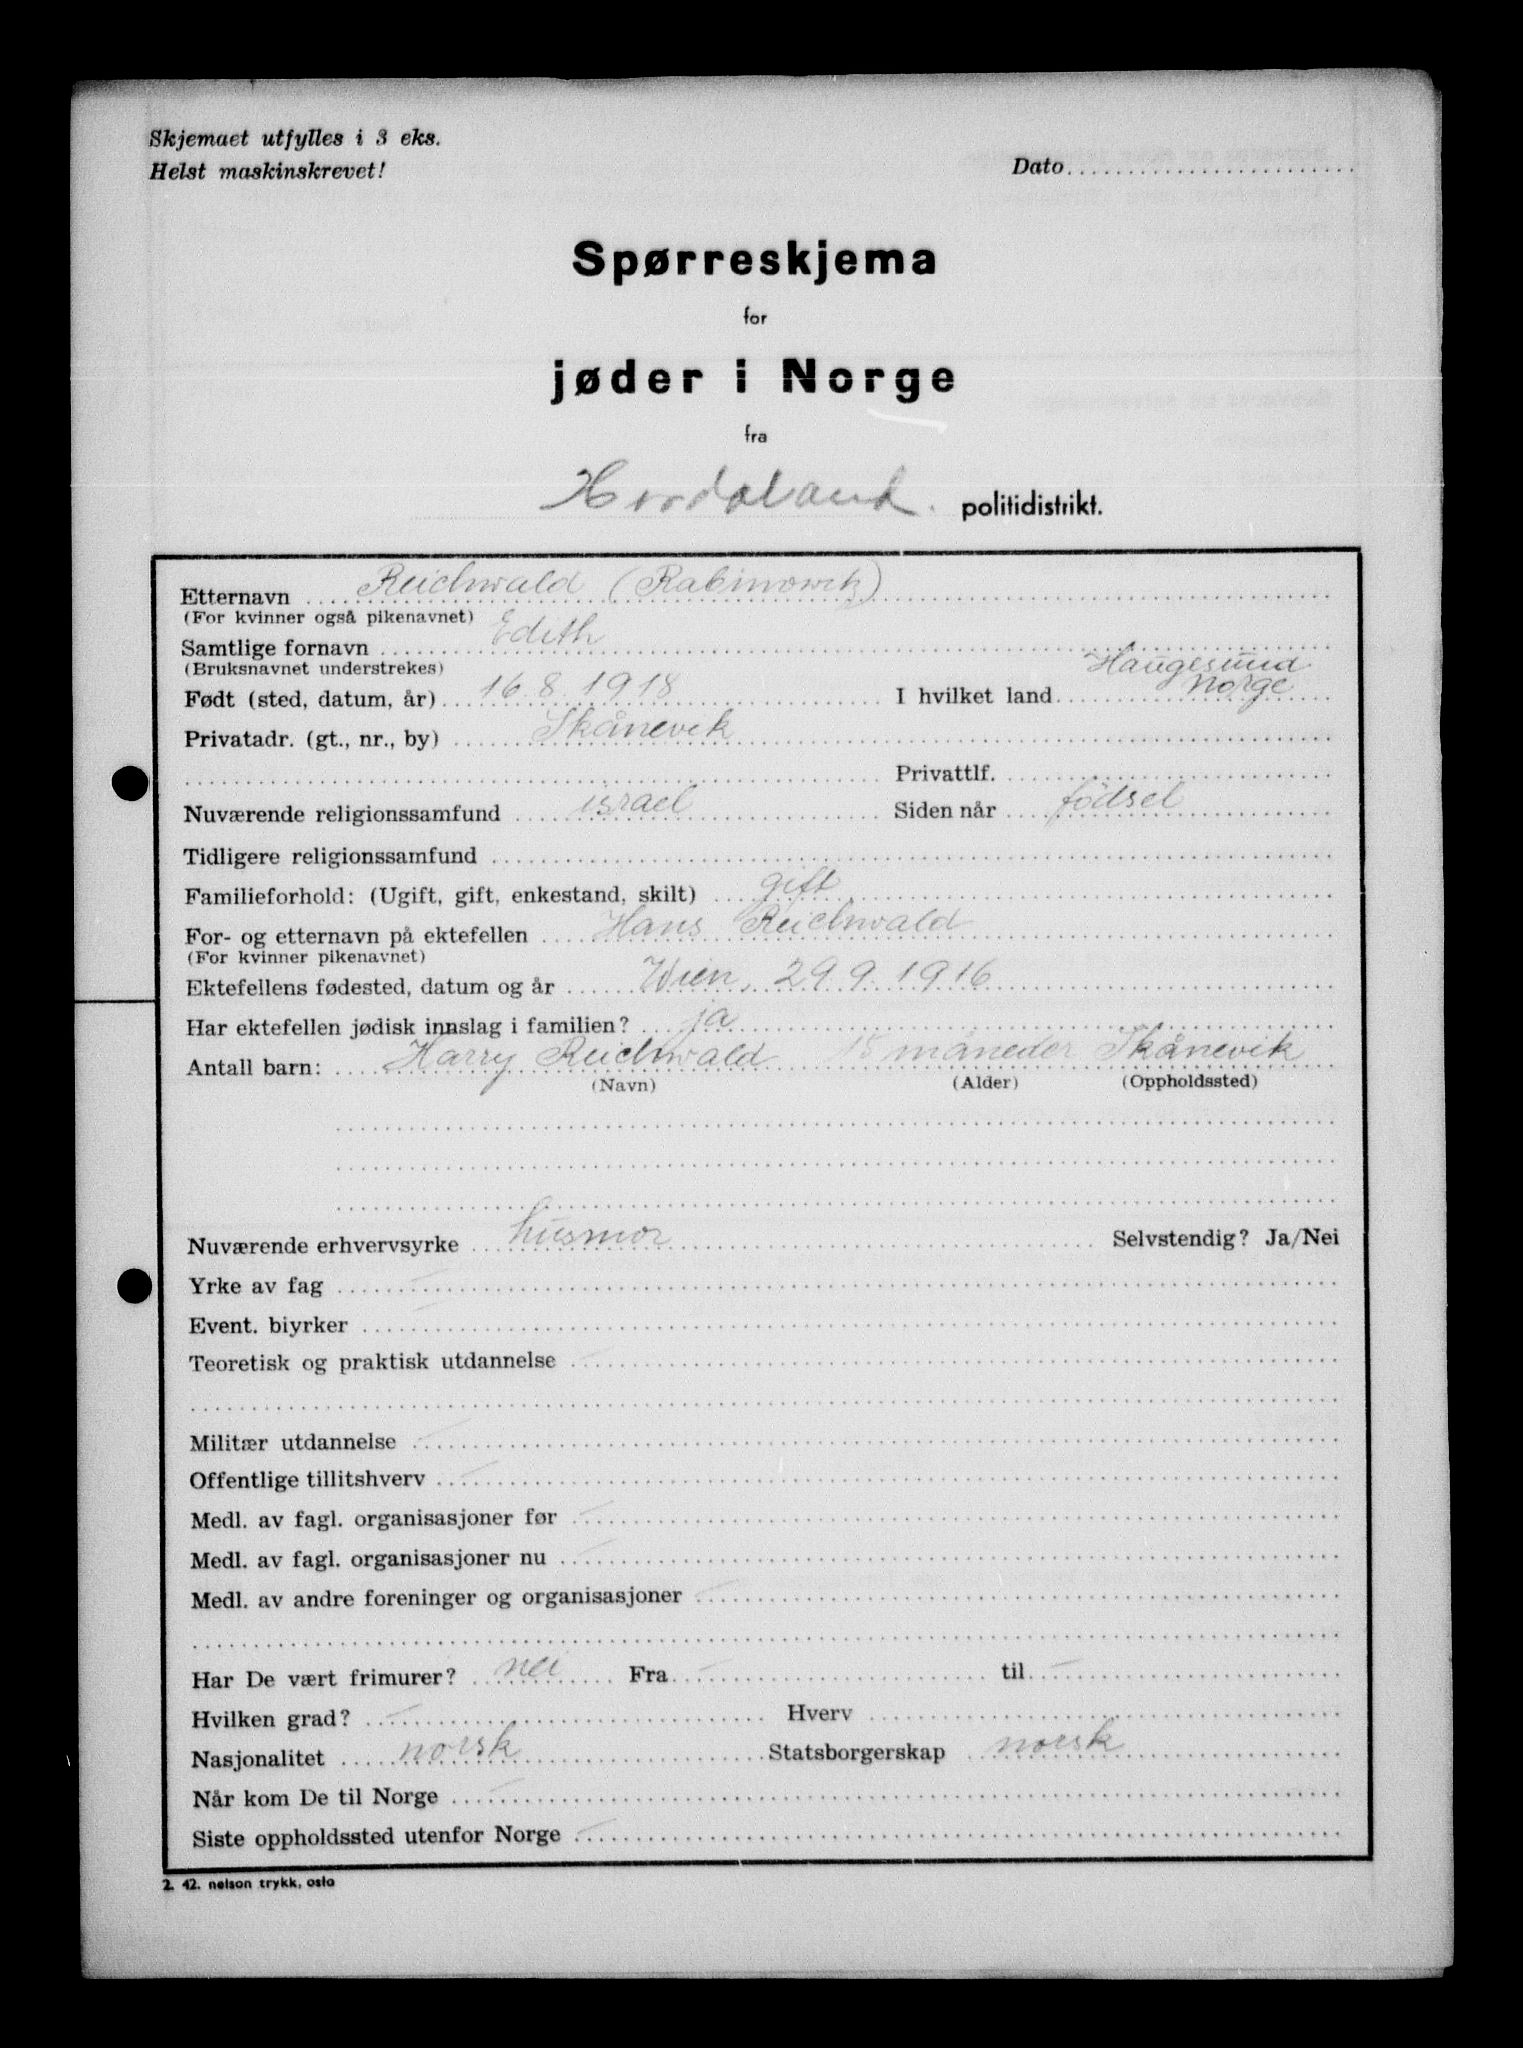 Skjemaet utfylles i 3 eks.
Helst maskinskrevet!
Dato
Spørreskjema
for
jøder i Norge
fra
Hordaland. politidistrikt.
Etternavn Reichwald (Rabinowitz)
(For kvinner også pikenavnet)
Samtlige fornavn Edith
(Bruksnavnet understrekes)
Født (sted, datum, år) 16.8.1918 I hvilket land Haugesund Norge
Privatadr. (gt., nr., by) Skånevik
Privattlf.
Nuværende religionssamfund israel Siden når fødsel
Tidligere religionssamfund
Familieforhold: (Ugift, gift, enkestand, skilt) gift
For- og etternavn på ektefellen Hans Reichwald
(For kvinner pikenavnet)
Ektefellens fødested, datum og år Wien, 29.9.1916
Har ektefellen jødisk innslag i familien? ja
Antall barn: Harry Reichwald 15 måneder Skånevik
(Navn) (Alder) (Oppholdssted)
Nuværende erhvervsyrke husmor Selvstendig? Ja/Nei
Yrke av fag —
Event. biyrker —
Teoretisk og praktisk utdannelse —
Militær utdannelse —
Offentlige tillitshverv —
Medl. av fagl. organisasjoner før —
Medl. av fagl. organisasjoner nu —
Medl. av andre foreninger og organisasjoner —
Har De vært frimurer? nei Fra — til —
Hvilken grad? — Hverv
Nasjonalitet norsk Statsborgerskap norsk
Når kom De til Norge —
Siste oppholdssted utenfor Norge —
2. 42. nelson trykk, oslo